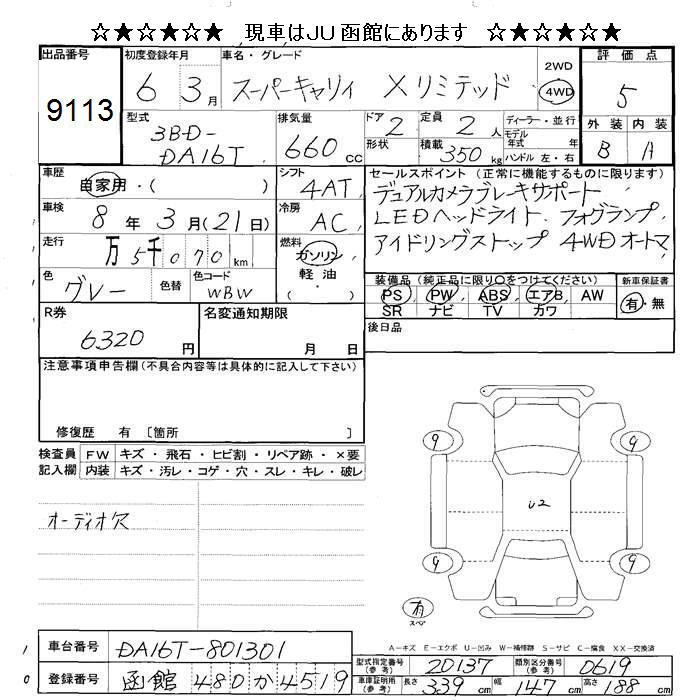 ☆★☆★☆★ 現車はJU函館にあります ☆★☆★☆★
出品番号 初度登録年月 車名・グレード 2WD 評価点
9113 6 3月 スーパーキャリイ Xリミテッド 4WD 5
型式 排気量 ドア 定員 ディーラー・並行 外装 内装
3BD- 2 2人 モデル
DA16T 660cc 形状 積載 350kg 年式 年 B A
ハンドル 左・右
車歴 シフト セールスポイント (正常に機能するものに限ります)
自家用・( ) 4AT デュアルカメラブレーキサポート
車検 冷房 LEDヘッドライト、フォグランプ、
8年3月(21日) AC アイドリングストップ 4WDオートマ
走行 燃料
万5千070km ガソリン
軽油
( )
色 グレー 色替 色コード WBW
装備品(純正品に限り〇をつけてください) 新車保証書
PS PW ABS エアB AW 有・無
SR ナビ TV カワ
R券 名変通知期限 後日品
6320円 月 日
注意事項申告欄(不具合内容等は具体的に記入して下さい)
修復歴 有 〔箇所 〕
検査員 FW キズ・飛石・ヒビ割・リペア跡・×要
記入欄 内装 キズ・汚レ・コゲ・穴・スレ・キレ・破レ
オーディオ欠
9 9
U2
9 9
有
スペア
A－キズ E－エクボ U－凹み W－補修跡 S－サビ C－腐食 XX－交換済
車台番号 DA16T-801301
型式指定番号(参考) 20137 類別区分番号(参考) 0619
登録番号 函館 480か4519
車庫証明用(参考) 長さ 339cm 幅 147cm 高さ 188cm